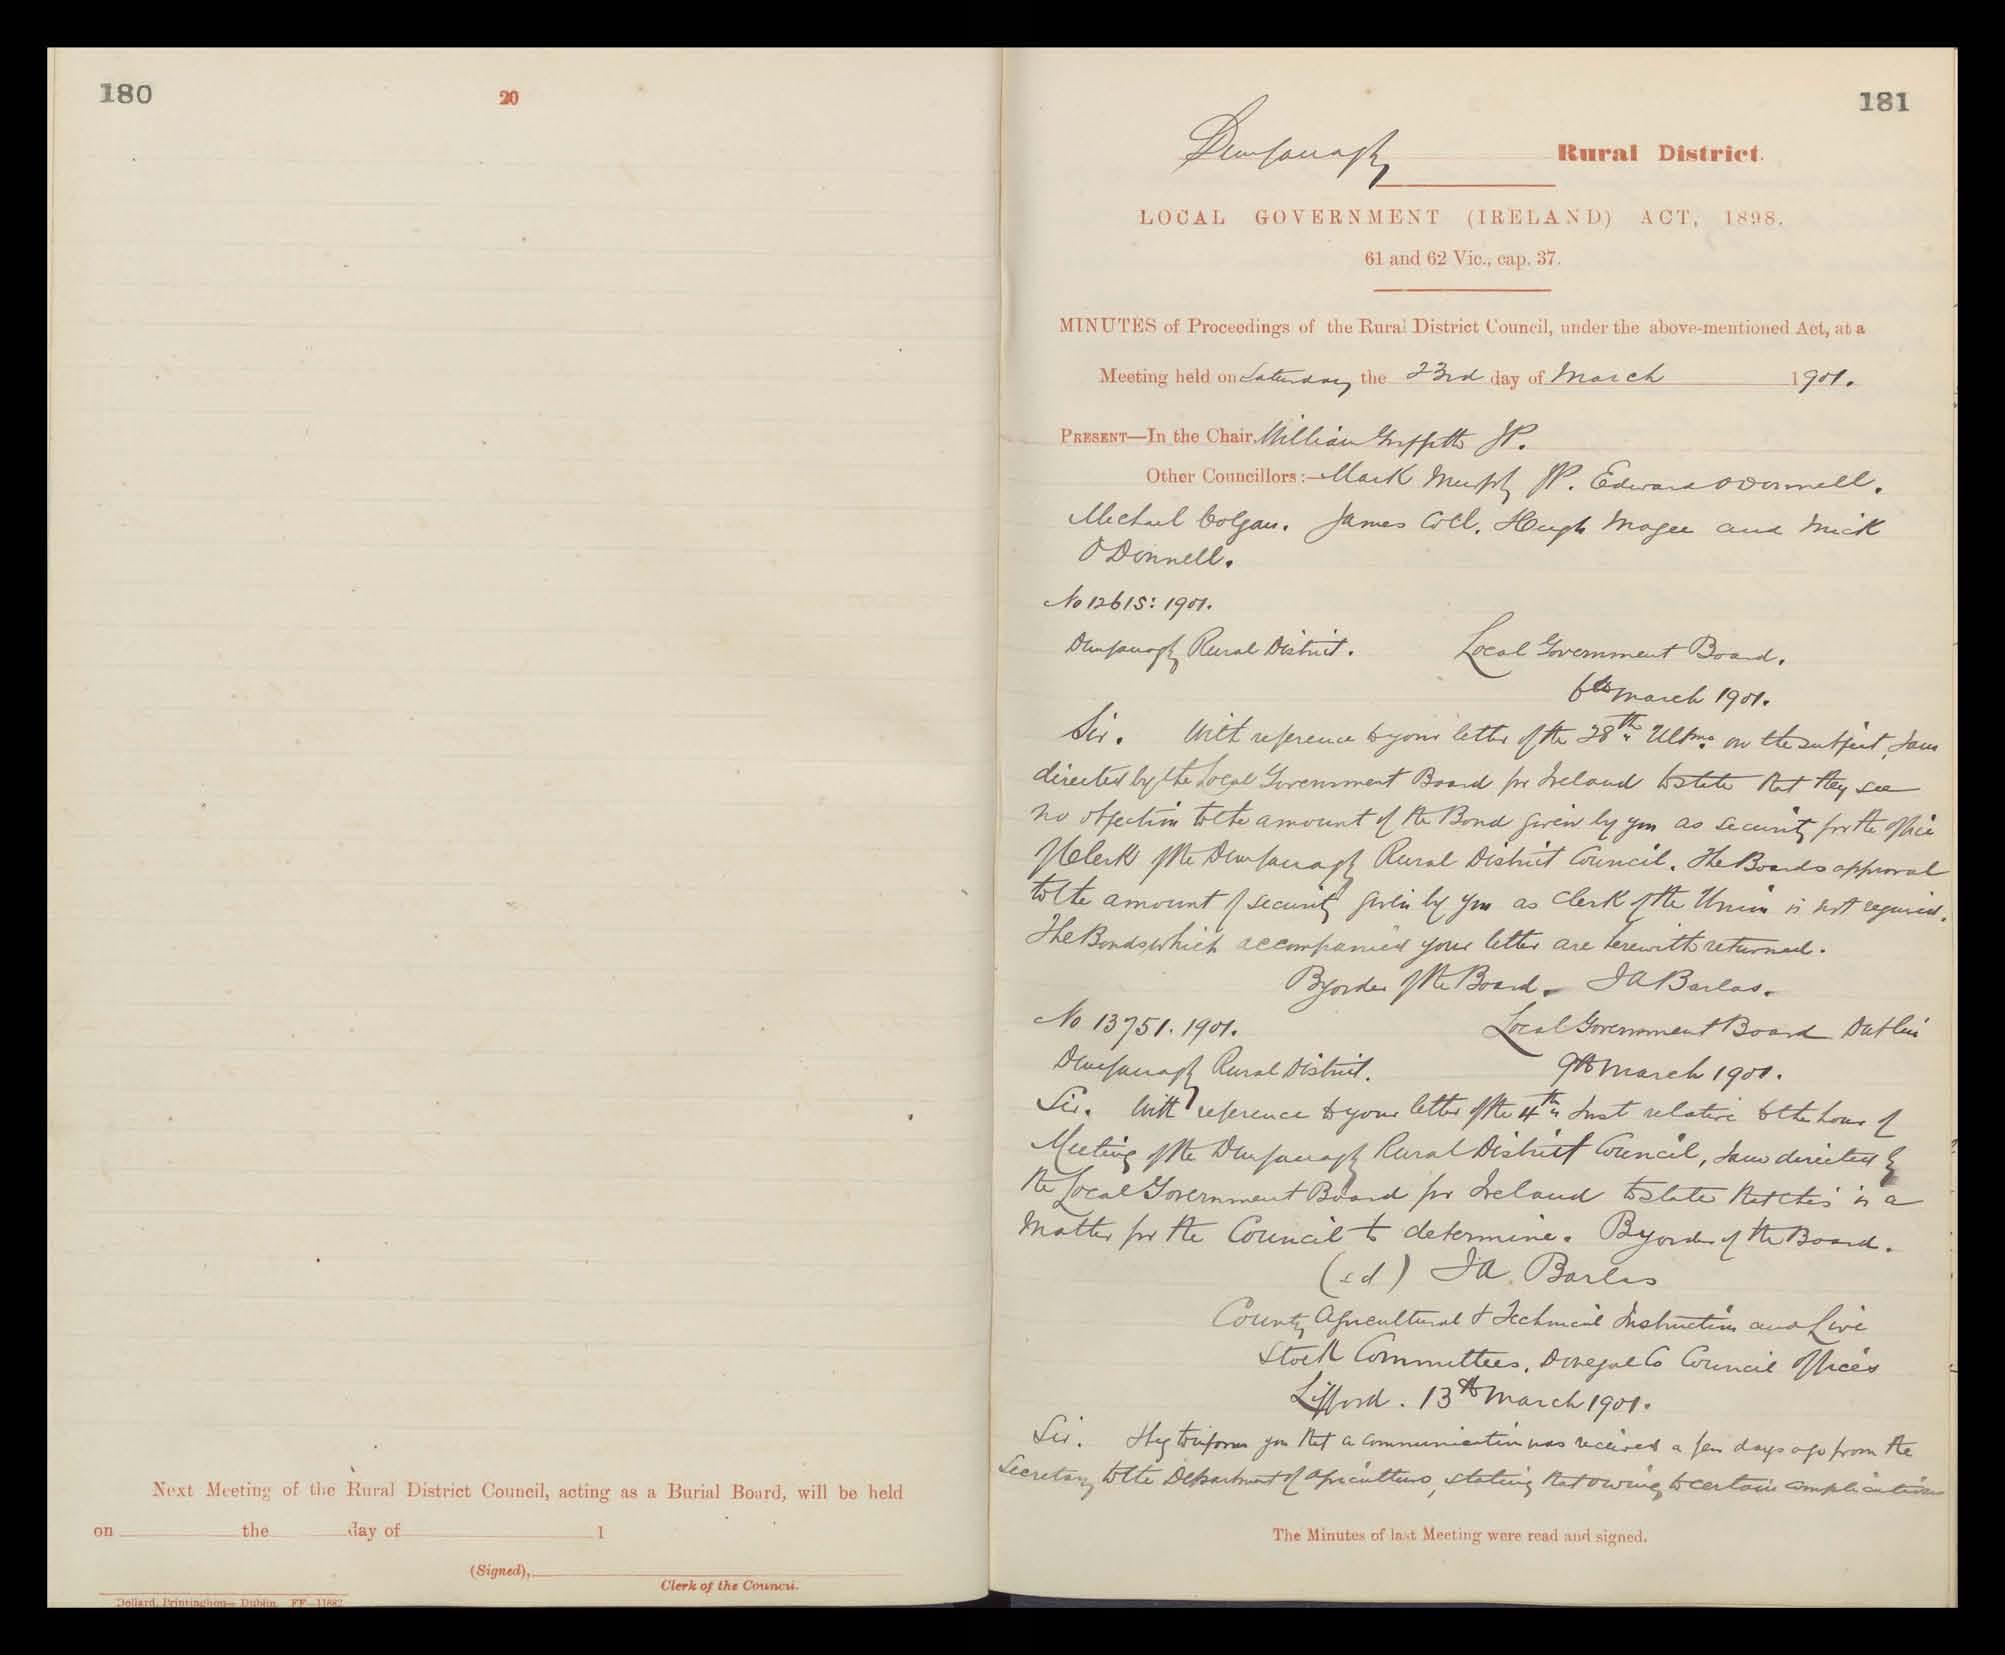 180
20
Next Meeting of the Rural District Council, acting as a Burial Board, will be held
on the day of 1
(Signed),
Clerk of the Council.
Dollard, Printinghouse Dublin. FF—11882
181
Dunfanaghy Rural District.
LOCAL GOVERNMENT (IRELAND) ACT, 1898.
61 and 62 Vic., cap. 37.
MINUTES of Proceedings of the Rural District Council, under the above-mentioned Act, at a
Meeting held on Saturday the 23rd day of March 1901.
PRESENT—In the Chair William Griffith JP.
Other Councillors:— Mark Murphy JP. Edward O'Donnell.
Michael Colgan. James Coll. Hugh Magee and Mick
O'Donnell.
No 12615: 1901.
Dunfanaghy Rural District. Local Government Board.
6th March 1901.
Sir. With reference to your letter of the 28th Ultmo on the subject, I am
directed by the Local Government Board for Ireland to state that they see
no objection to the amount of the Bond given by you as security for the office
of Clerk of the Dunfanaghy Rural District Council. The Boards approval
to the amount of security given by you as Clerk of the Union is not required.
The Bonds which accompanied your letter are herewith returned.
By order of the Board. J A Barlas.
No 13751. 1901. Local Government Board Dublin
Dunfanaghy Rural District. 9th March 1901.
Sir. With reference to your letter of the 4th Inst relative to the hour of
Meeting of the Dunfanaghy Rural District Council, I am directed by
the Local Government Board for Ireland to state that this is a
Matter for the Council to determine. By order of the Board.
(sd) J A. Barlas
County Agricultural & Technical Instruction and Live
Stock Committees. Donegal Co Council Offices
Lifford. 13th March 1901.
Sir. I beg to inform you that a communication was received a few days ago from the
Secretary to the Department of Agriculture, stating that owing to certain complications
The Minutes of last Meeting were read and signed.